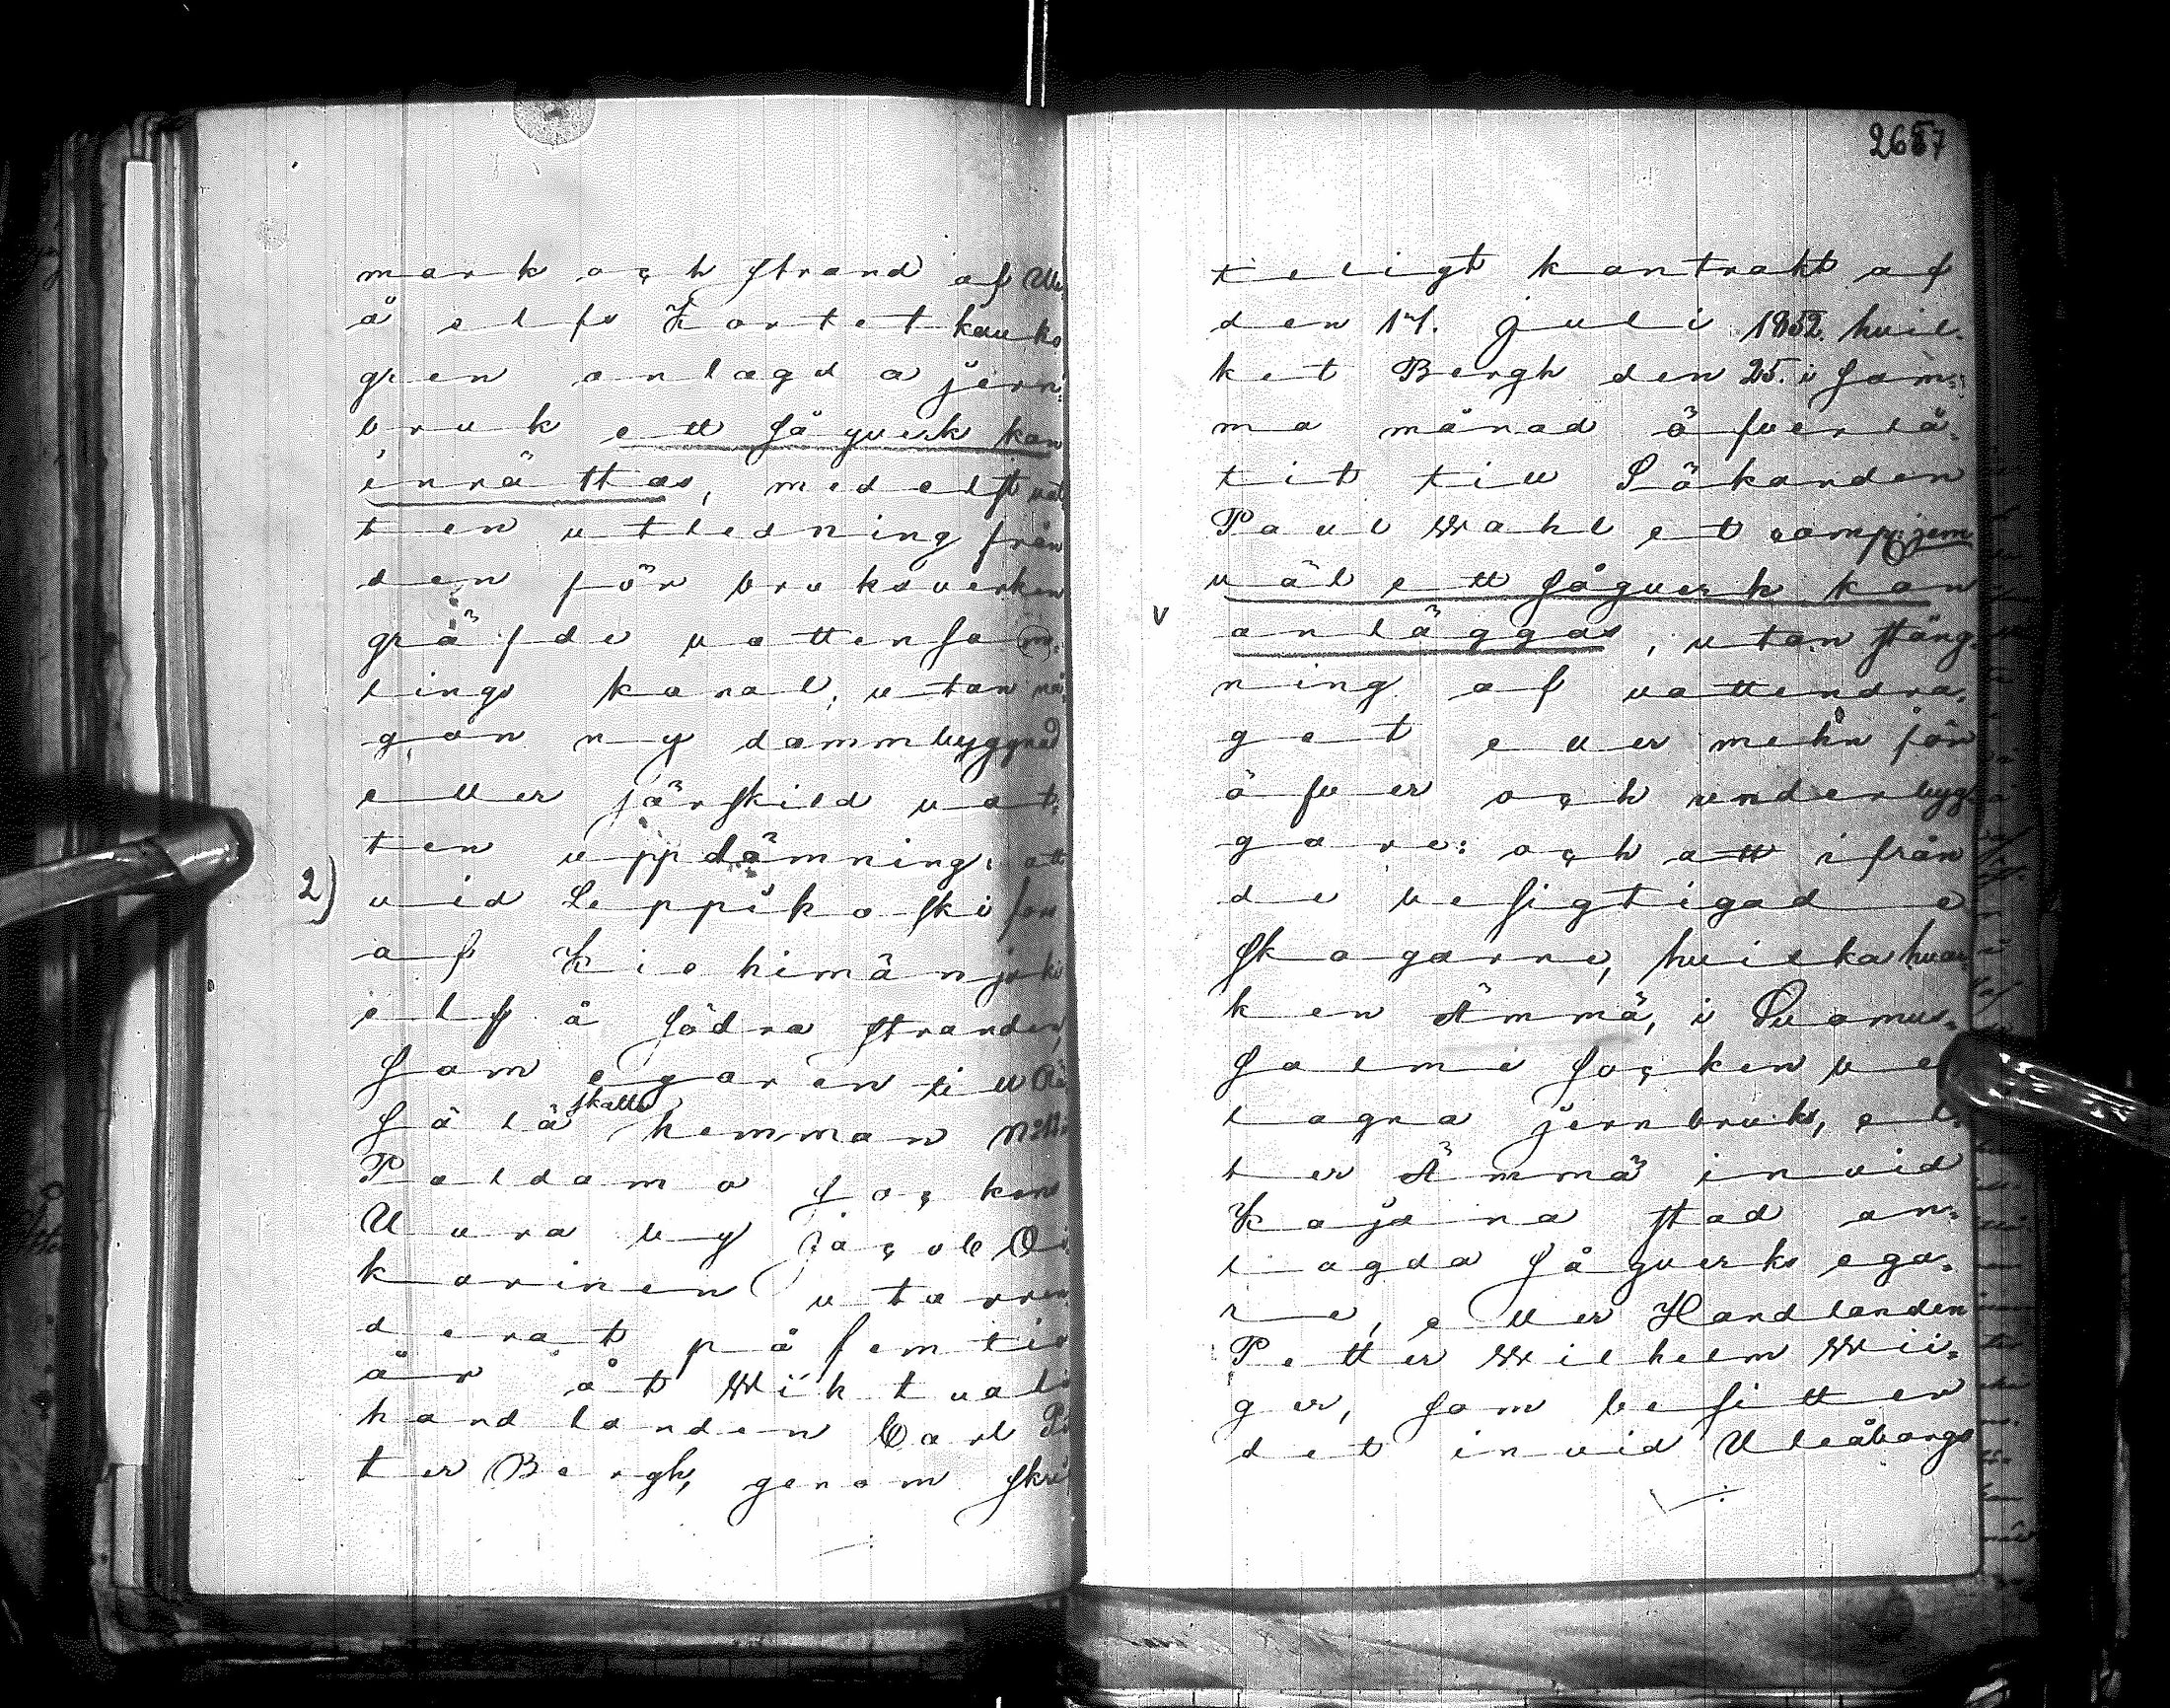 mark och strand af Ule
å elfs Kortet kauko
gren anlagda jern:
bruk ett sågverk kan
inrättas, medelst vat
ten utledning från
den för bruksverken
gräfde vattensam:
lings kanal, utan nå:
gon ny dammbyggnad
eller särskild vat:
ten uppdämning: att
2) vid Leppikoski fors
af Kiehimänjoki
elf å södra stranden,
som egaren till
sälä skatte hemman N:o 11.
Paldamo sockens
Uura by Jacob Oi
karinen utarren
derat på femtio
år åt Wiktuali
handlanden Carl Pe
ter Bergh, genom skri
2657
teligt kontrakt af
den 17. Juli 1852. hvil.
ket Bergh den 25. i sam:
ma månad öfverlå.
tit till Sökanden
Paul Wahl et comp: jem
väl ett sågverk kan
v anläggas, utan stäng.
ning af vattendra.
get eller mehn för
öfver och underbyg.
gare: och att ifrån
de besigtigade
skogarne, hvilka hvar
ken Ämmä, i Suomus.
salmi socken be
lägna jernbruk, el.
ler Ämmä invid
Kajana stad an.
lagda sågverks ega.
re, eller Handlanden
Petter Wilhelm Wii.
ger, som besitter
det invid Uleåborgs